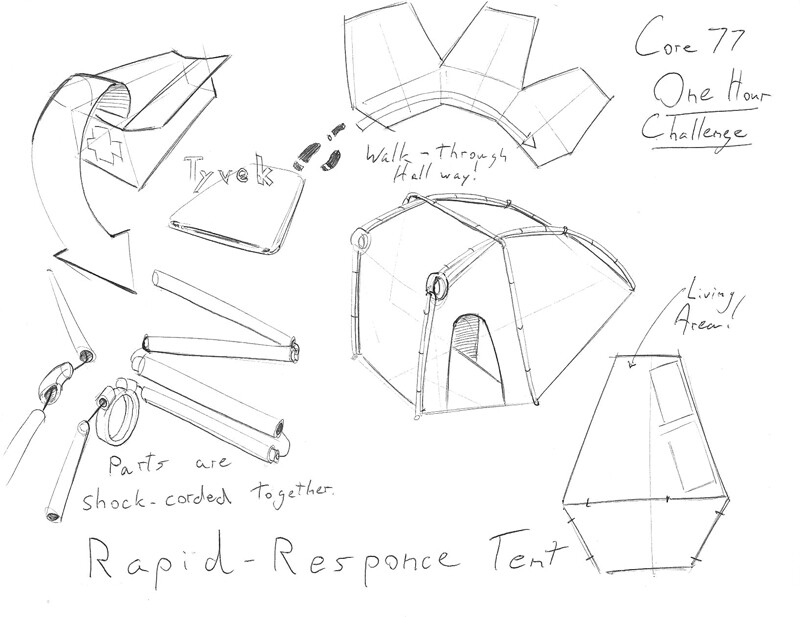 Core 77
One Hour
Challenge
Tyvek
Walk-through
Hallway!
Living
Area!
Parts are
shock-corded together.
Rapid-Responce Tent